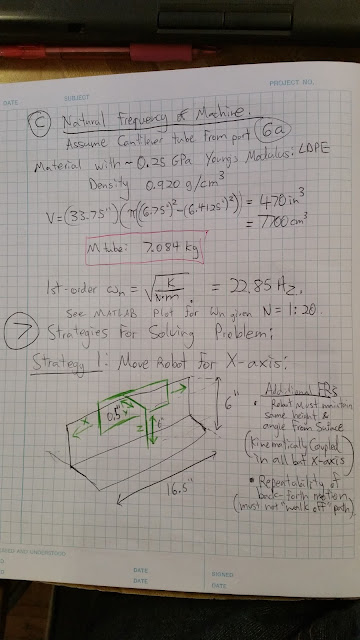 DATE SUBJECT PROJECT NO.
C Natural Frequency of Machine.
Assume Cantilever tube from part 6a
Material with ~ 0.25 GPa Young's Modulus: LDPE
Density 0.920 g/cm³
V=(33.75")(π((6.75")²-(6.4125")²)) = 470 in³
= 7700 cm³
Mtube: 7.084 kg
1st-order ωn = √ = 22.85 Hz.
See MATLAB Plot for ωn given N = 1:20.
7 Strategies For Solving Problem:
Strategy 1: Move Robot for X-axis:
Additional FRs
• Robot must maintain
same height &
angle from Surface
(Kinematically Coupled
in all but X-axis)
• Repeatability of
back-forth motion
(must not "walk off" path)
0.5"
X
6"
6"
16.5"
AND UNDERSTOOD
DATE SIGNED
DATE DATE